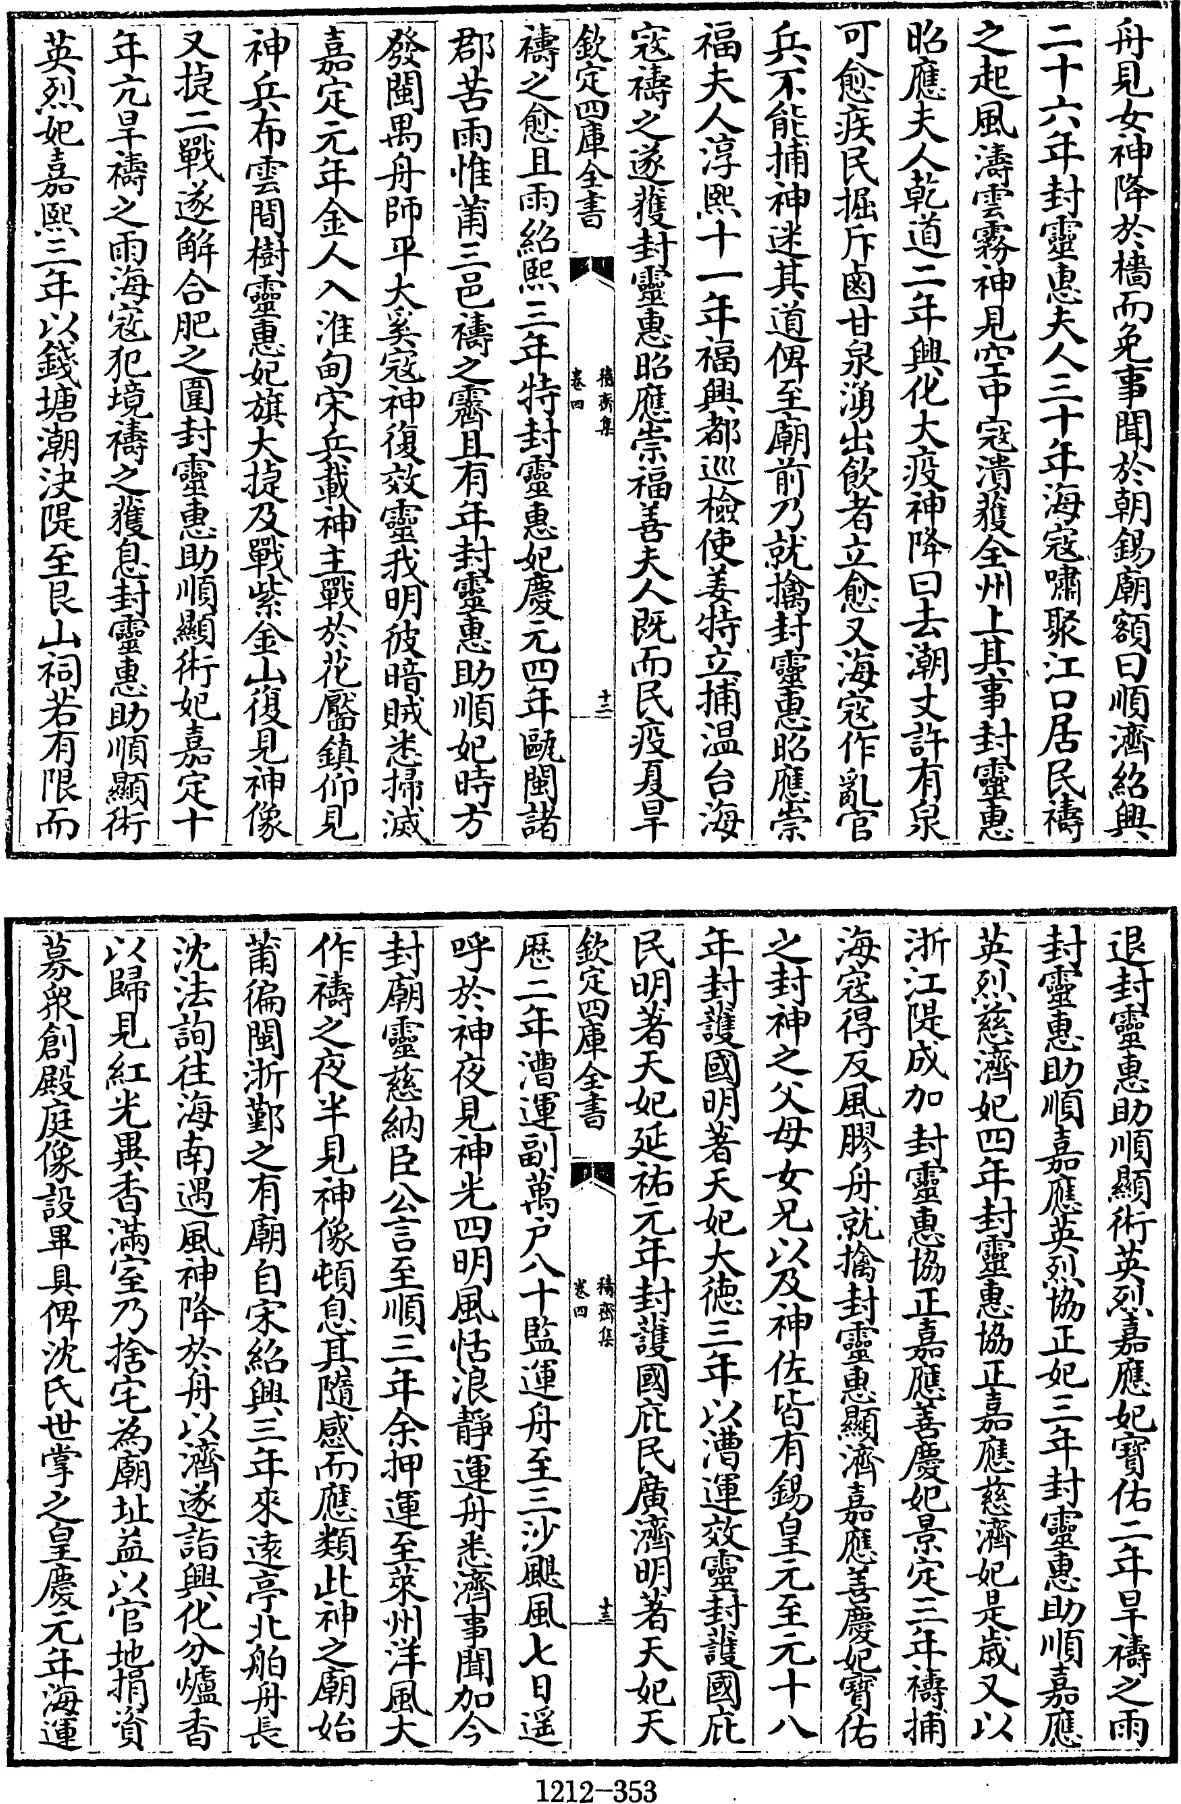 舟見女神降於檣而免事聞於朝錫廟額曰順濟紹興
二十六年封靈惠夫人三十年海寇嘯聚江口居民禱
之起風濤雲霧神見空中寇潰獲全州上其事封靈惠
昭應夫人乾道二年興化大疫神降曰去潮丈許有泉
可愈疾民掘斥鹵甘泉湧出飲者立愈又海寇作亂官
兵不能捕神迷其道俾至廟前乃就擒封靈惠昭應崇
福夫人淳熙十一年福興都巡檢使姜特立捕温台海
寇禱之遂獲封靈惠昭應崇福善夫人既而民疫夏旱
欽定四庫全書
積齋集
卷四
十二
禱之愈且雨紹熙三年特封靈惠妃慶元四年甌閩諸
郡苦雨惟莆三邑禱之霽且有年封靈惠助順妃時方
發閩禺舟師平大奚寇神復效靈我明彼暗賊悉掃滅
嘉定元年金人入淮甸宋兵載神主戰於花靨鎮仰見
神兵布雲間樹靈惠妃旗大捷及戰紫金山復見神像
又捷二戰遂解合肥之圍封靈惠助順顯術妃嘉定十
年亢旱禱之雨海寇犯境禱之獲息封靈惠助順顯術
英烈妃嘉熙三年以錢塘潮決隄至艮山祠若有限而
退封靈惠助順顯術英烈嘉應妃寳佑二年旱禱之雨
封靈惠助順嘉應英烈協正妃三年封靈惠助順嘉應
英烈慈濟妃四年封靈惠協正嘉應慈濟妃是歲又以
浙江隄成加封靈惠協正嘉應善慶妃景定三年禱捕
海寇得反風膠舟就擒封靈惠顯濟嘉應善慶妃寳佑
之封神之父母女兄以及神佐皆有錫皇元至元十八
年封護國明著天妃大德三年以漕運效靈封護國庇
民明著天妃延祐元年封護國庇民廣濟明著天妃天
欽定四庫全書
積齋集
卷四
十三
歷二年漕運副萬戶八十監運舟至三沙颶風七日遥
呼於神夜見神光四明風恬浪靜運舟悉濟事聞加今
封廟靈慈納臣公言至順三年余押運至萊州洋風大
作禱之夜半見神像頓息其隨感而應類此神之廟始
莆徧閩浙鄞之有廟自宋紹興三年來逺亭北舶舟長
沈法詢往海南遇風神降於舟以濟遂詣興化分爐香
以歸見紅光異香滿室乃捨宅為廟址益以官地捐資
募衆創殿庭像設畢具俾沈氏世掌之皇慶元年海運
1212-353